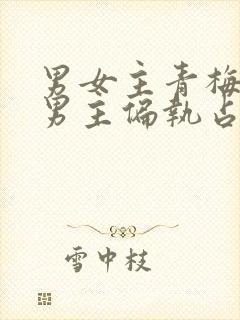 男女主青梅
男主偏执占
雪中枝